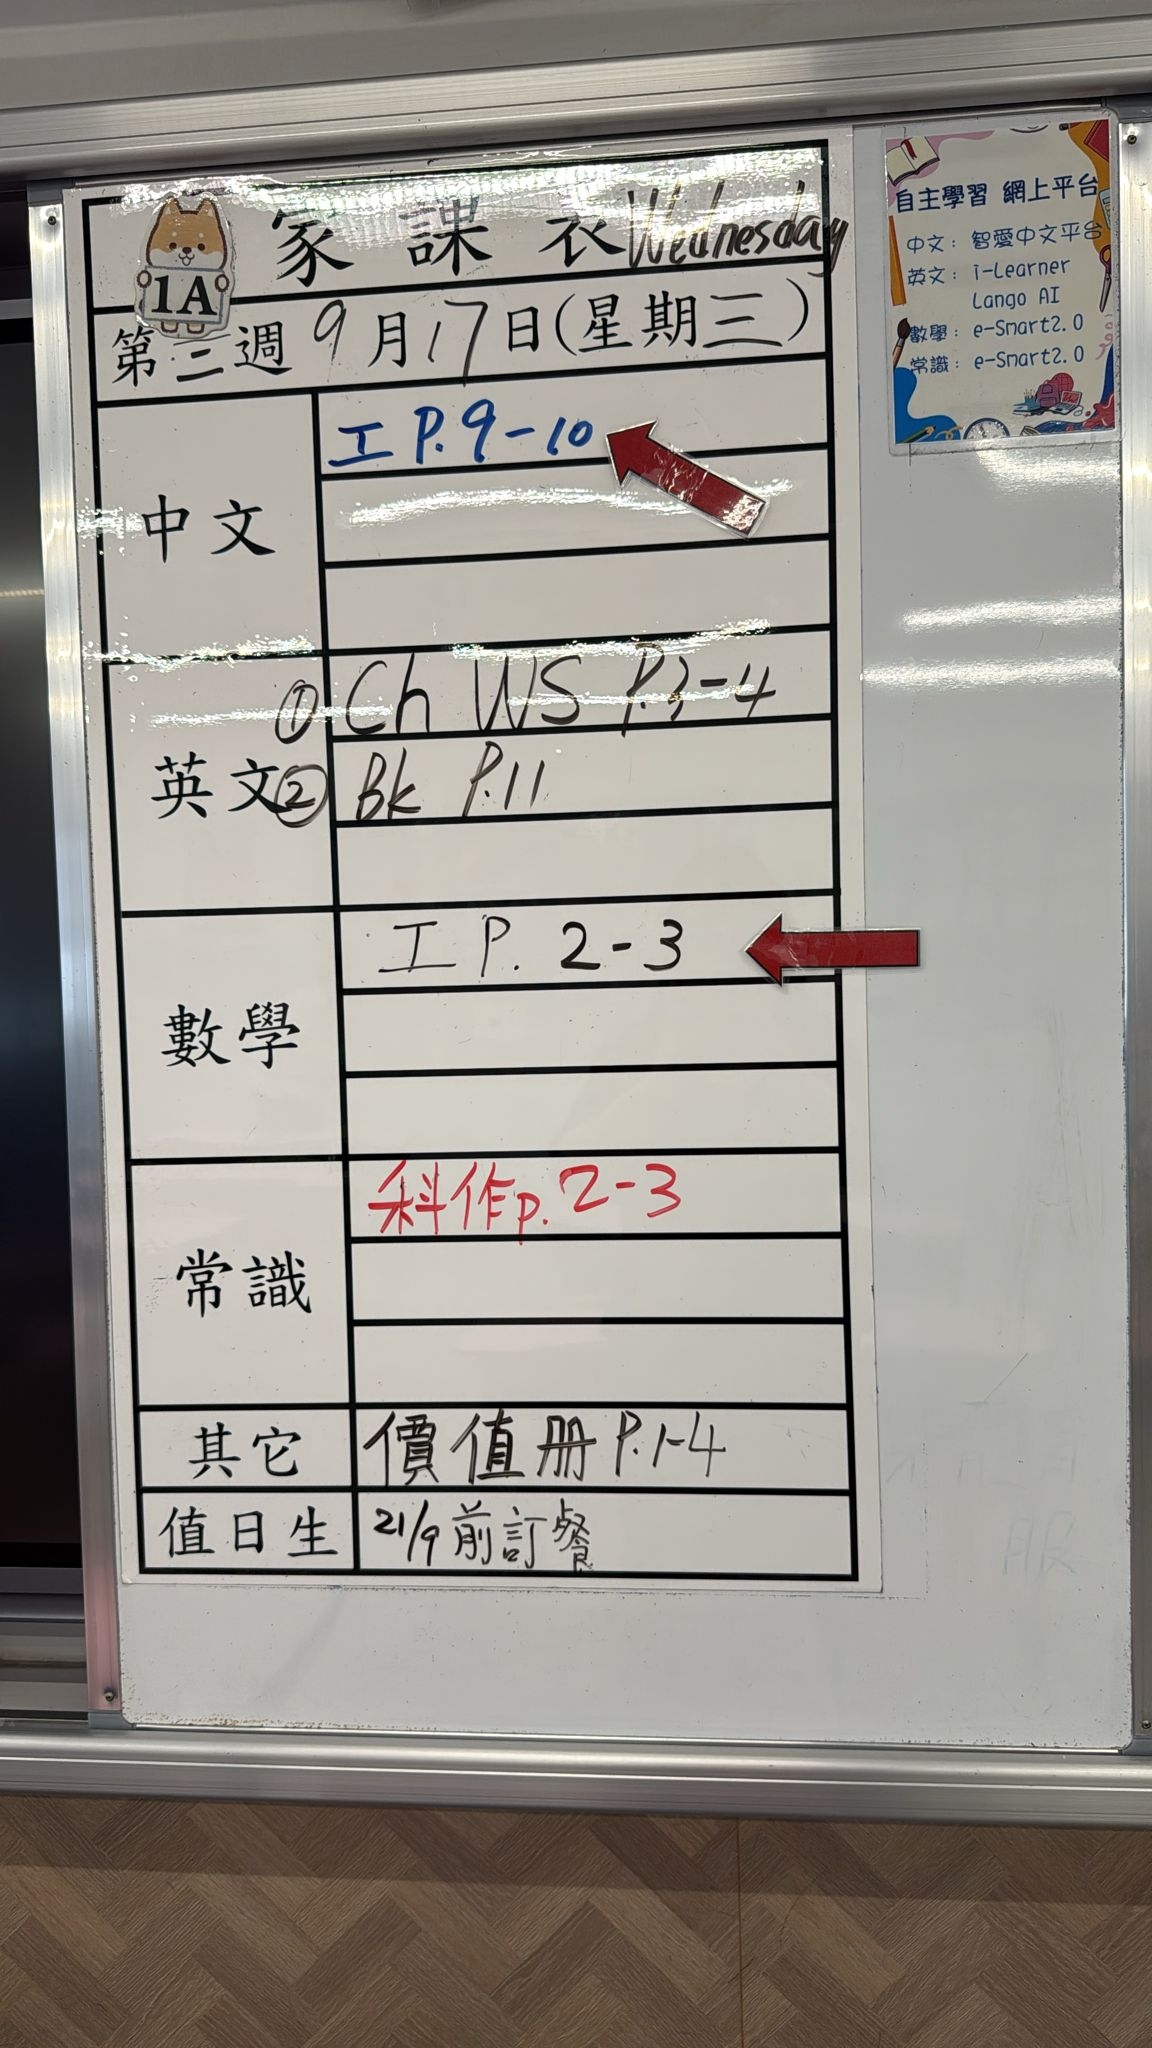 家課表 Wednesday
1A
第三週 9月17日(星期三)
中文
工 P.9-10
英文
① Ch WS P.3-4
② Bk P.11
數學
工 P. 2-3
常識
科作p. 2-3
其它
價值册 P.1-4
值日生
21/9前訂餐
自主學習 網上平台
中文: 智愛中文平台
英文: i-Learner
Lango AI
數學: e-Smart2.0
常識: e-Smart2.0